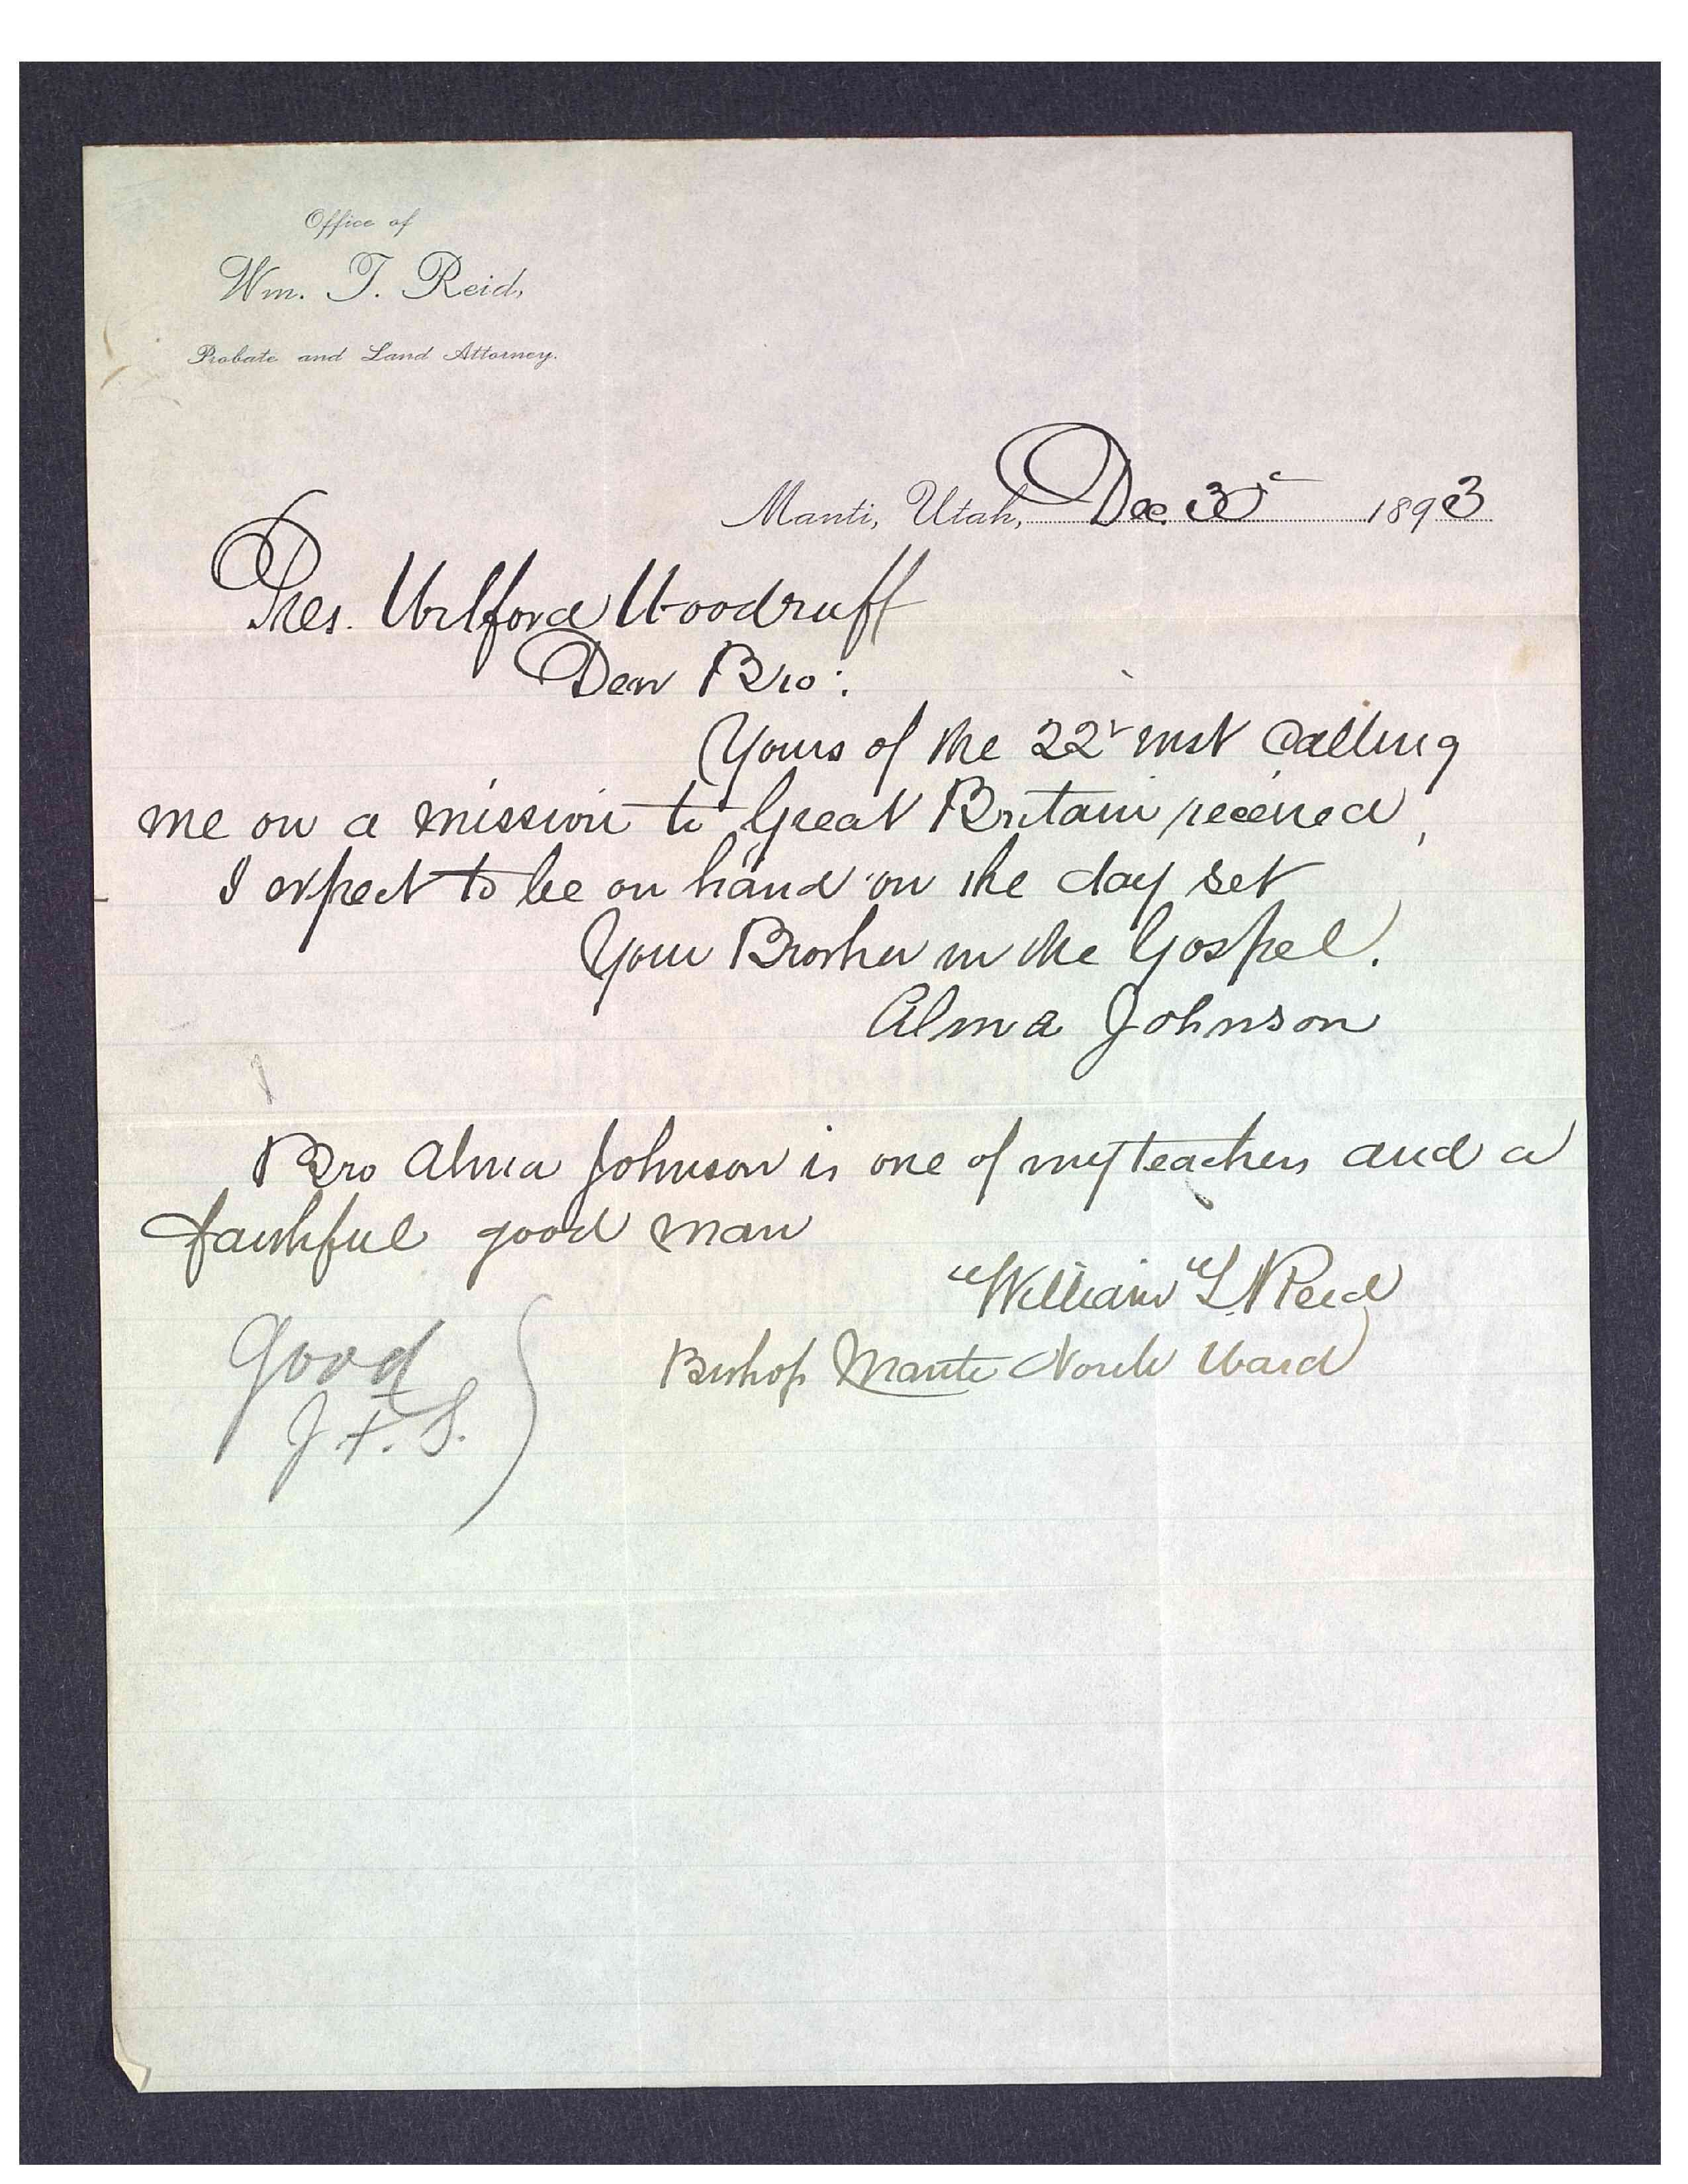 Office of
Wm. T. Reid,
Probate and Land Attorney.
Manti, Utah, Dec. 30 1893
Pres. Wilford Woodruff
Dear Bro:
Yours of the 22 inst calling
me on a mission to Great Britain received,
I expect to be on hand on the day set
Your Brother in the Gospel.
Alma Johnson
Bro Alma Johnson is one of my teachers and a
faithful good man
William T Reid
Bishop Manti North Ward
Good
J. F. S.